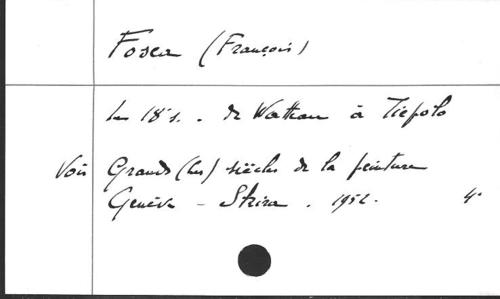 Fosca (François)
Le 18e s. - de Watteau à Tiepolo
Voir Grands (Les) siècles de la peinture
Genève - Skira. 1952. 4°